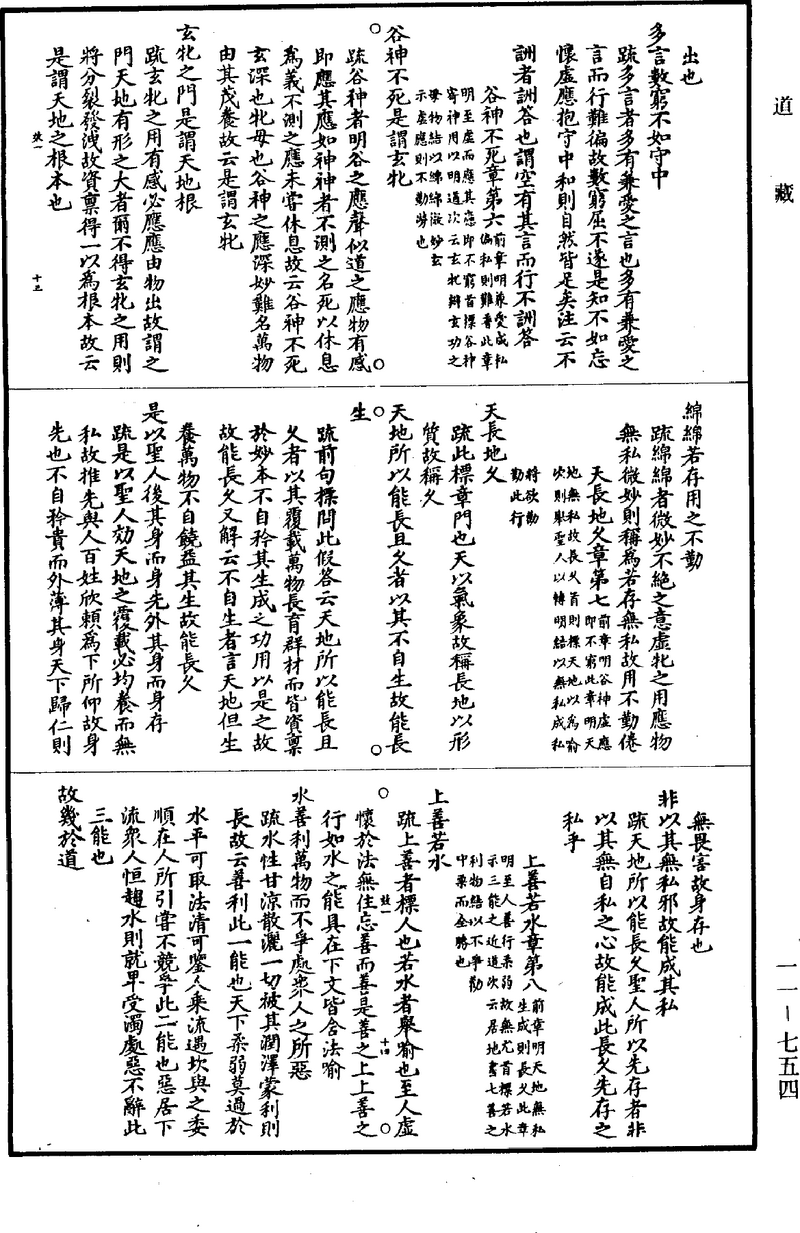 道藏
一一—七五四
出也
多言數窮不如守中
疏多言者多有兼愛之言也多有兼愛之
言而行難徧故數窮屈不遂是知不如忘
懷虛應抱守中和則自然皆足矣注云不
詶者詶答也謂空有其言而行不詶答
谷神不死章第六
前章明兼愛成私
偏私則難普此章
明至虛而應其應即不窮首標谷神
寄神用以明道次云玄牝辯玄功之
母物結以綿綿微妙玄
示虛應則不勤勞也
谷神不死是謂玄牝
疏谷神者明谷之應聲似道之應物有感
即應其應如神神者不測之名死以休息
為義不測之應未嘗休息故云谷神不死
玄深也牝母也谷神之應深妙難名萬物
由其茂養故云是謂玄牝
玄牝之門是謂天地根
疏玄牝之用有感必應應由物出故謂之
門天地有形之大者爾不得玄牝之用則
將分裂發洩故資稟得一以為根本故云
是謂天地之根本也
效一
十三
綿綿若存用之不勤
疏綿綿者微妙不絕之意虛牝之用應物
無私微妙則稱為若存無私故用不勤倦
天長地久章第七
前章明谷神虛應
即不窮此章明天
地無私故長久首則標天地以為喻
次則舉聖人以轉明結以無私成私
將欲勸
勤此行
天長地久
疏此標章門也天以氣象故稱長地以形
質故稱久
天地所以能長且久者以其不自生故能長
生
疏前句標問此假答云天地所以能長且
久者以其覆載萬物長育群材而皆資稟
於妙本不自矜其生成之功用以是之故
故能長久又解云不自生者言天地但生
養萬物不自饒益其生故能長久
是以聖人後其身而身先外其身而身存
疏是以聖人効天地之覆載必均養而無
私故推先與人百姓欣賴為下所仰故身
先也不自矜貴而外薄其身天下歸仁則
無畏害故身存也
非以其無私邪故能成其私
疏天地所以能長久聖人所以先存者非
以其無自私之心故能成此長久先存之
私乎
上善若水章第八
前章明天地無私
生成則長久此章
明至人善行柔弱故無尤首標若水
示三能之近道次云居地書七善之
利物結以不爭勸
中柔而全勝也
上善若水
疏上善者標人也若水者舉喻也至人虛
懷於法無住忘善而善是善之上上善之
行如水之能具在下文皆含法喻
效一
十四
水善利萬物而不爭處衆人之所惡
疏水性甘涼散灑一切被其潤澤蒙利則
長故云善利此一能也天下柔弱莫過於
水平可取法清可鑒人乘流遇坎與之委
順在人所引嘗不競爭此二能也惡居下
流衆人恒趣水則就卑受濁處惡不辭此
三能也
故幾於道